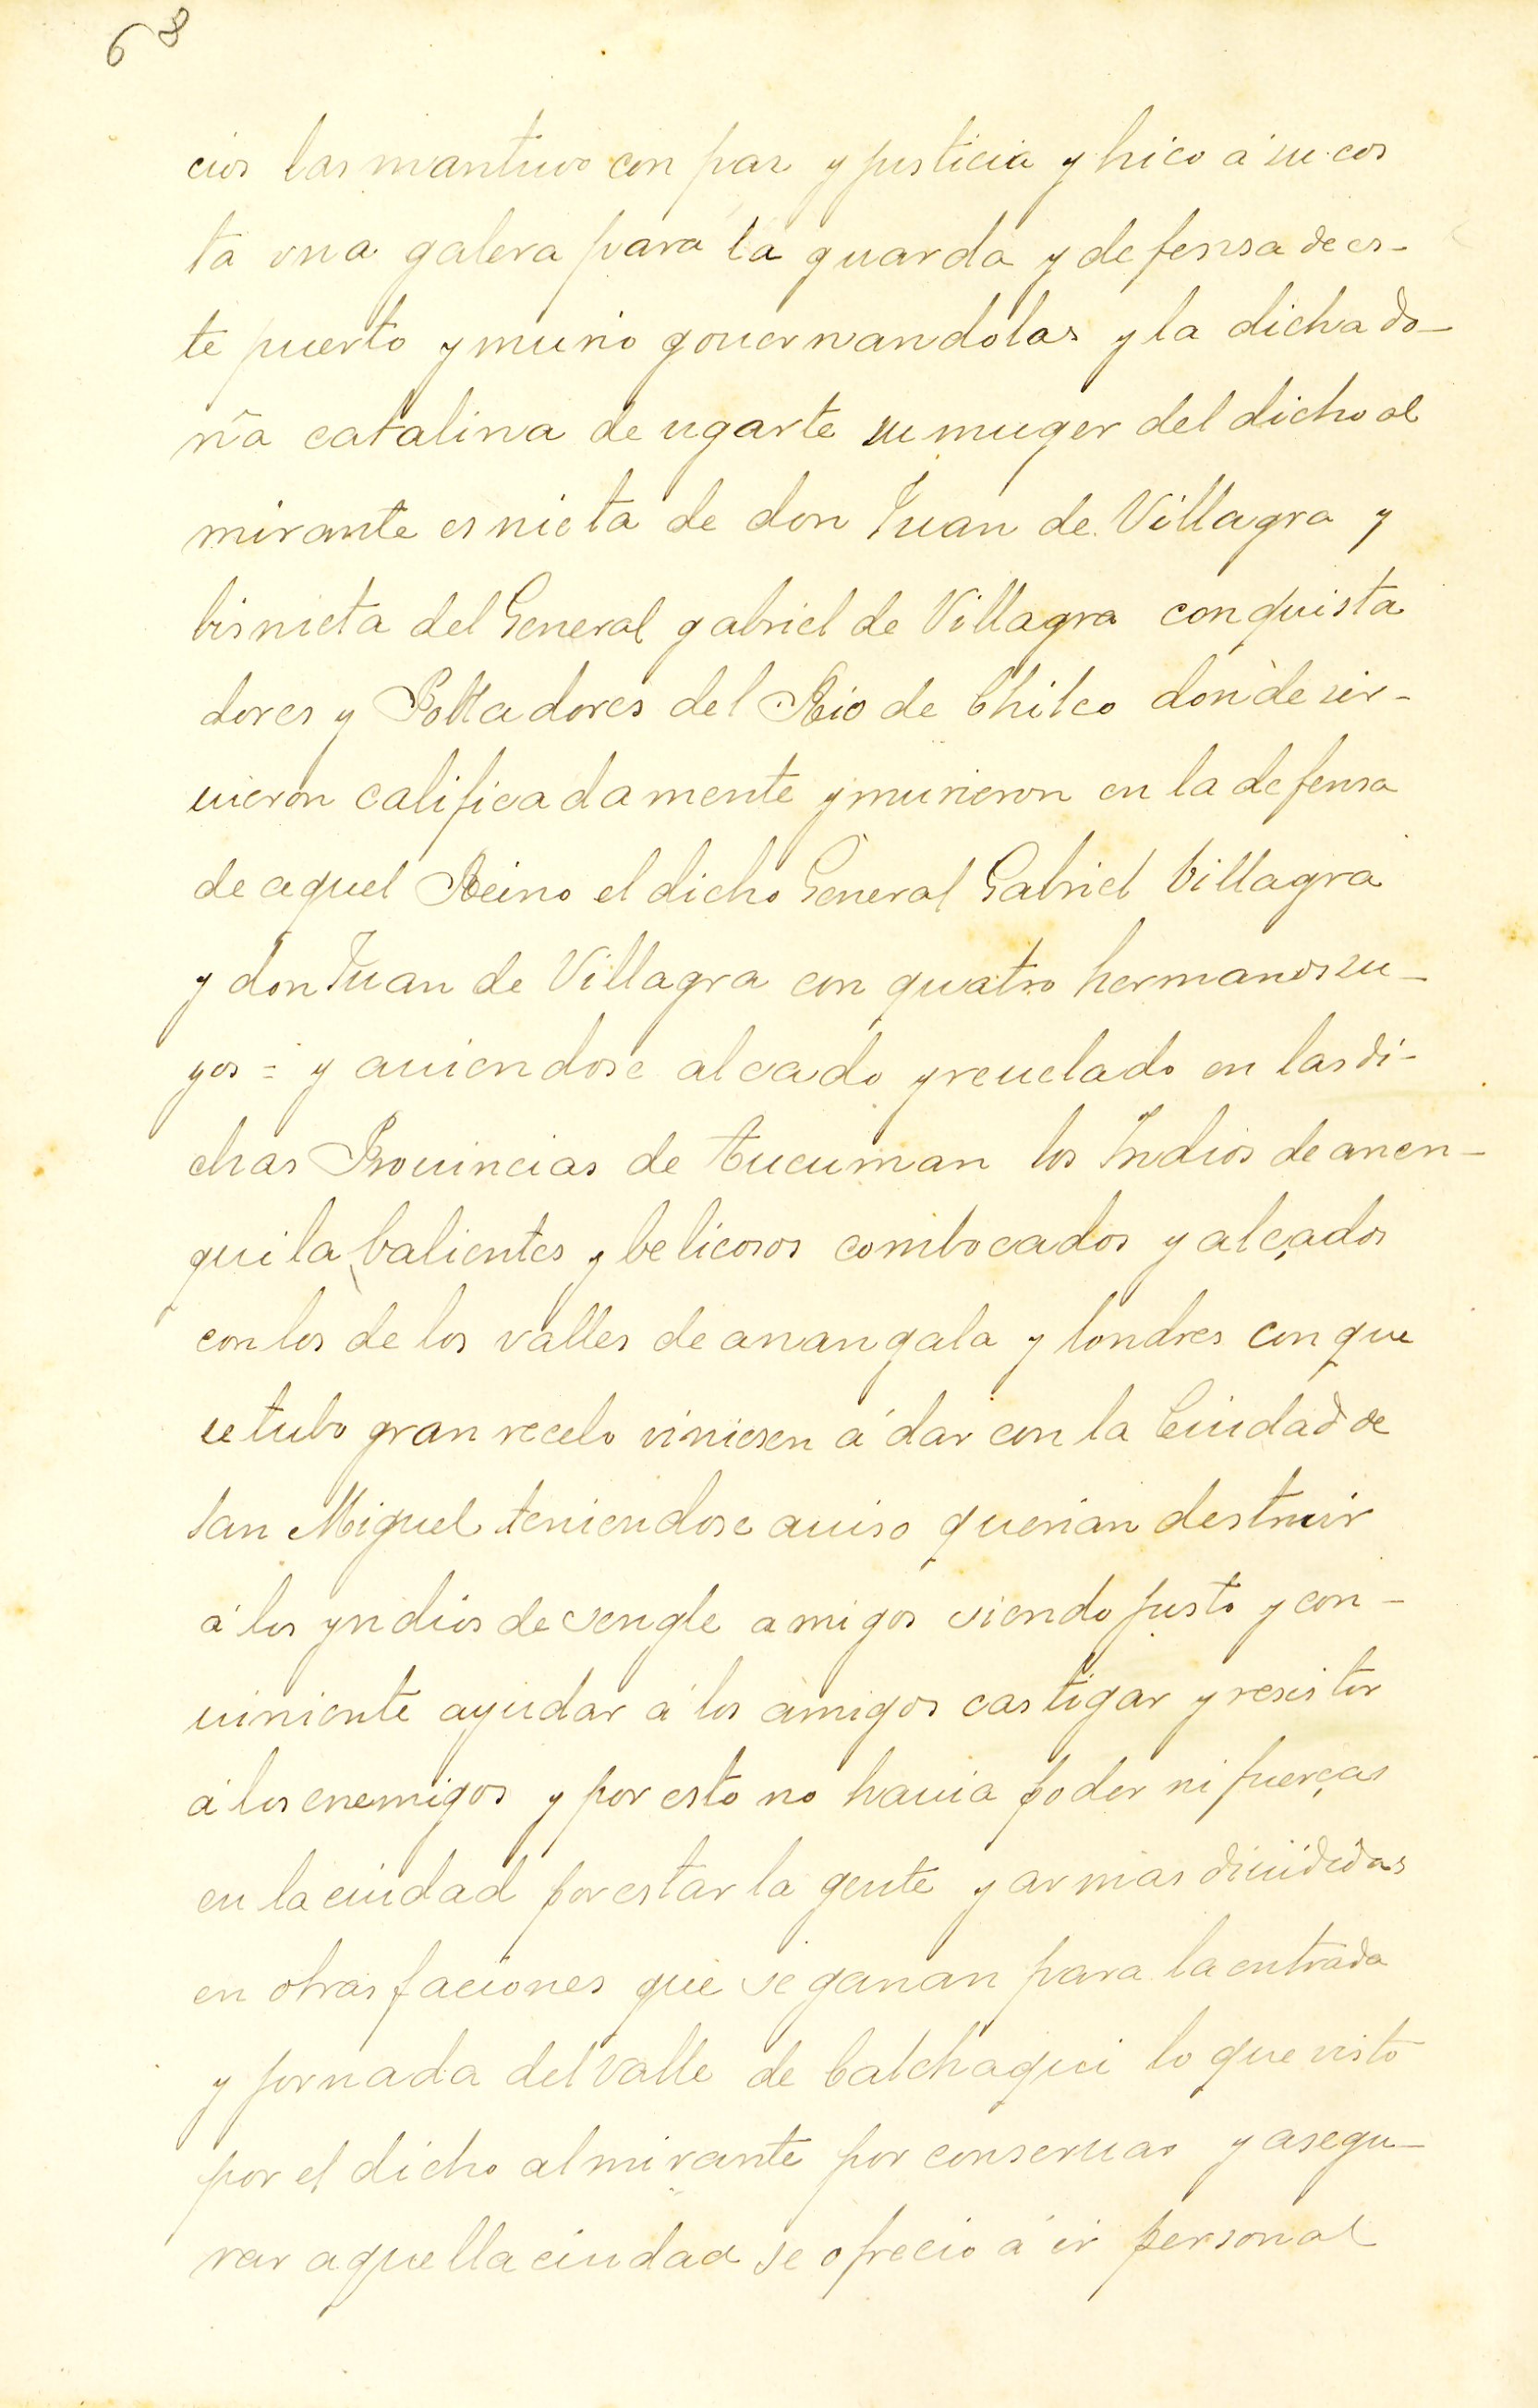 68
cios las mantuvo con paz y justicia y hico á su cos
ta vna galera para la guarda y defensa de es-
te puerto y murio gouernandolas y la dicha do-
ña catalina de ugarte su muger del dicho al
mirante es nieta de don Juan de Villagra y
bisnieta del General gabriel de Villagra conquista
dores y Pobladores del Rio de Chileo donde sir-
uieron calificadamente y murieron en la defensa
de aquel Reino el dicho General Gabriel Villagra
y don Juan de Villagra con quatro hermanos su-
yos = y auiendose alcado y reuelado en las di-
chas Prouincias de tucuman los Indios de anen-
quila balientes y belicosos combocados y alçados
con los de los valles de anangala y londres con que
se tubo gran recelo viniesen á dar con la Ciudad de
san Miguel teniendose auiso querian destruir
á los yndios de sengle amigos siendo justo y con-
uiniente ayudar á los amigos castigar y resistir
á los enemigos y por esto no hauia poder ni fuerças
en la ciudad por estar la gente y armas diuididas
en otras faciones que se ganan para la entrada
y jornada del valle de Calchaqui lo que visto
por el dicho almirante por conseruar y asegu-
rar aquella ciudad se ofrecio á ir personal